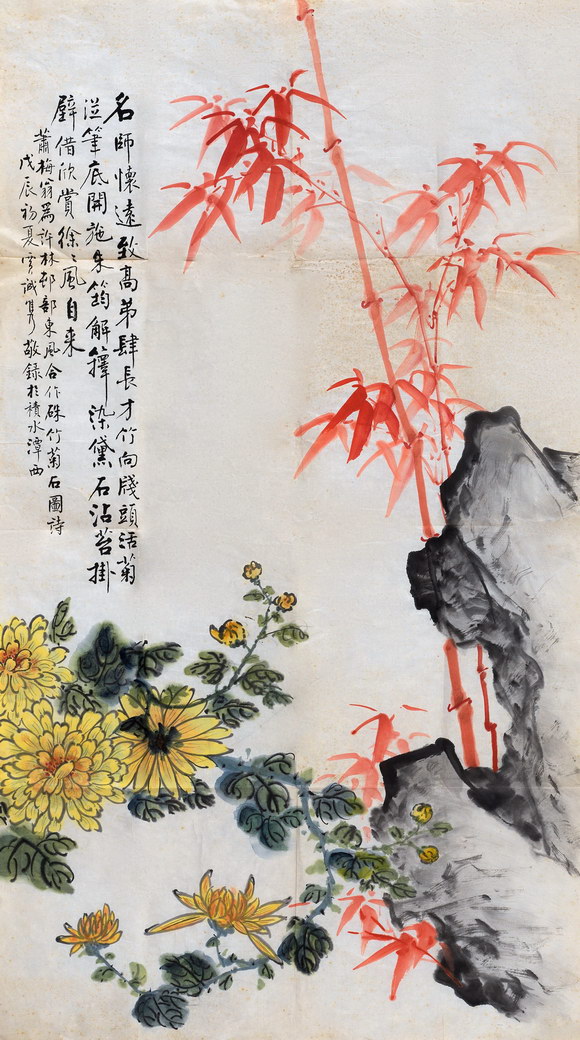 名師懷遠致高弟肆長才竹向牋頭活菊
從筆底開施朱筠解籜染黛石沾苔掛
壁借欣賞徐〻風自来
蕭梅翁為許林邨部東風合作硃竹菊石圖詩
戊辰初夏寶誠敬錄於積水潭西